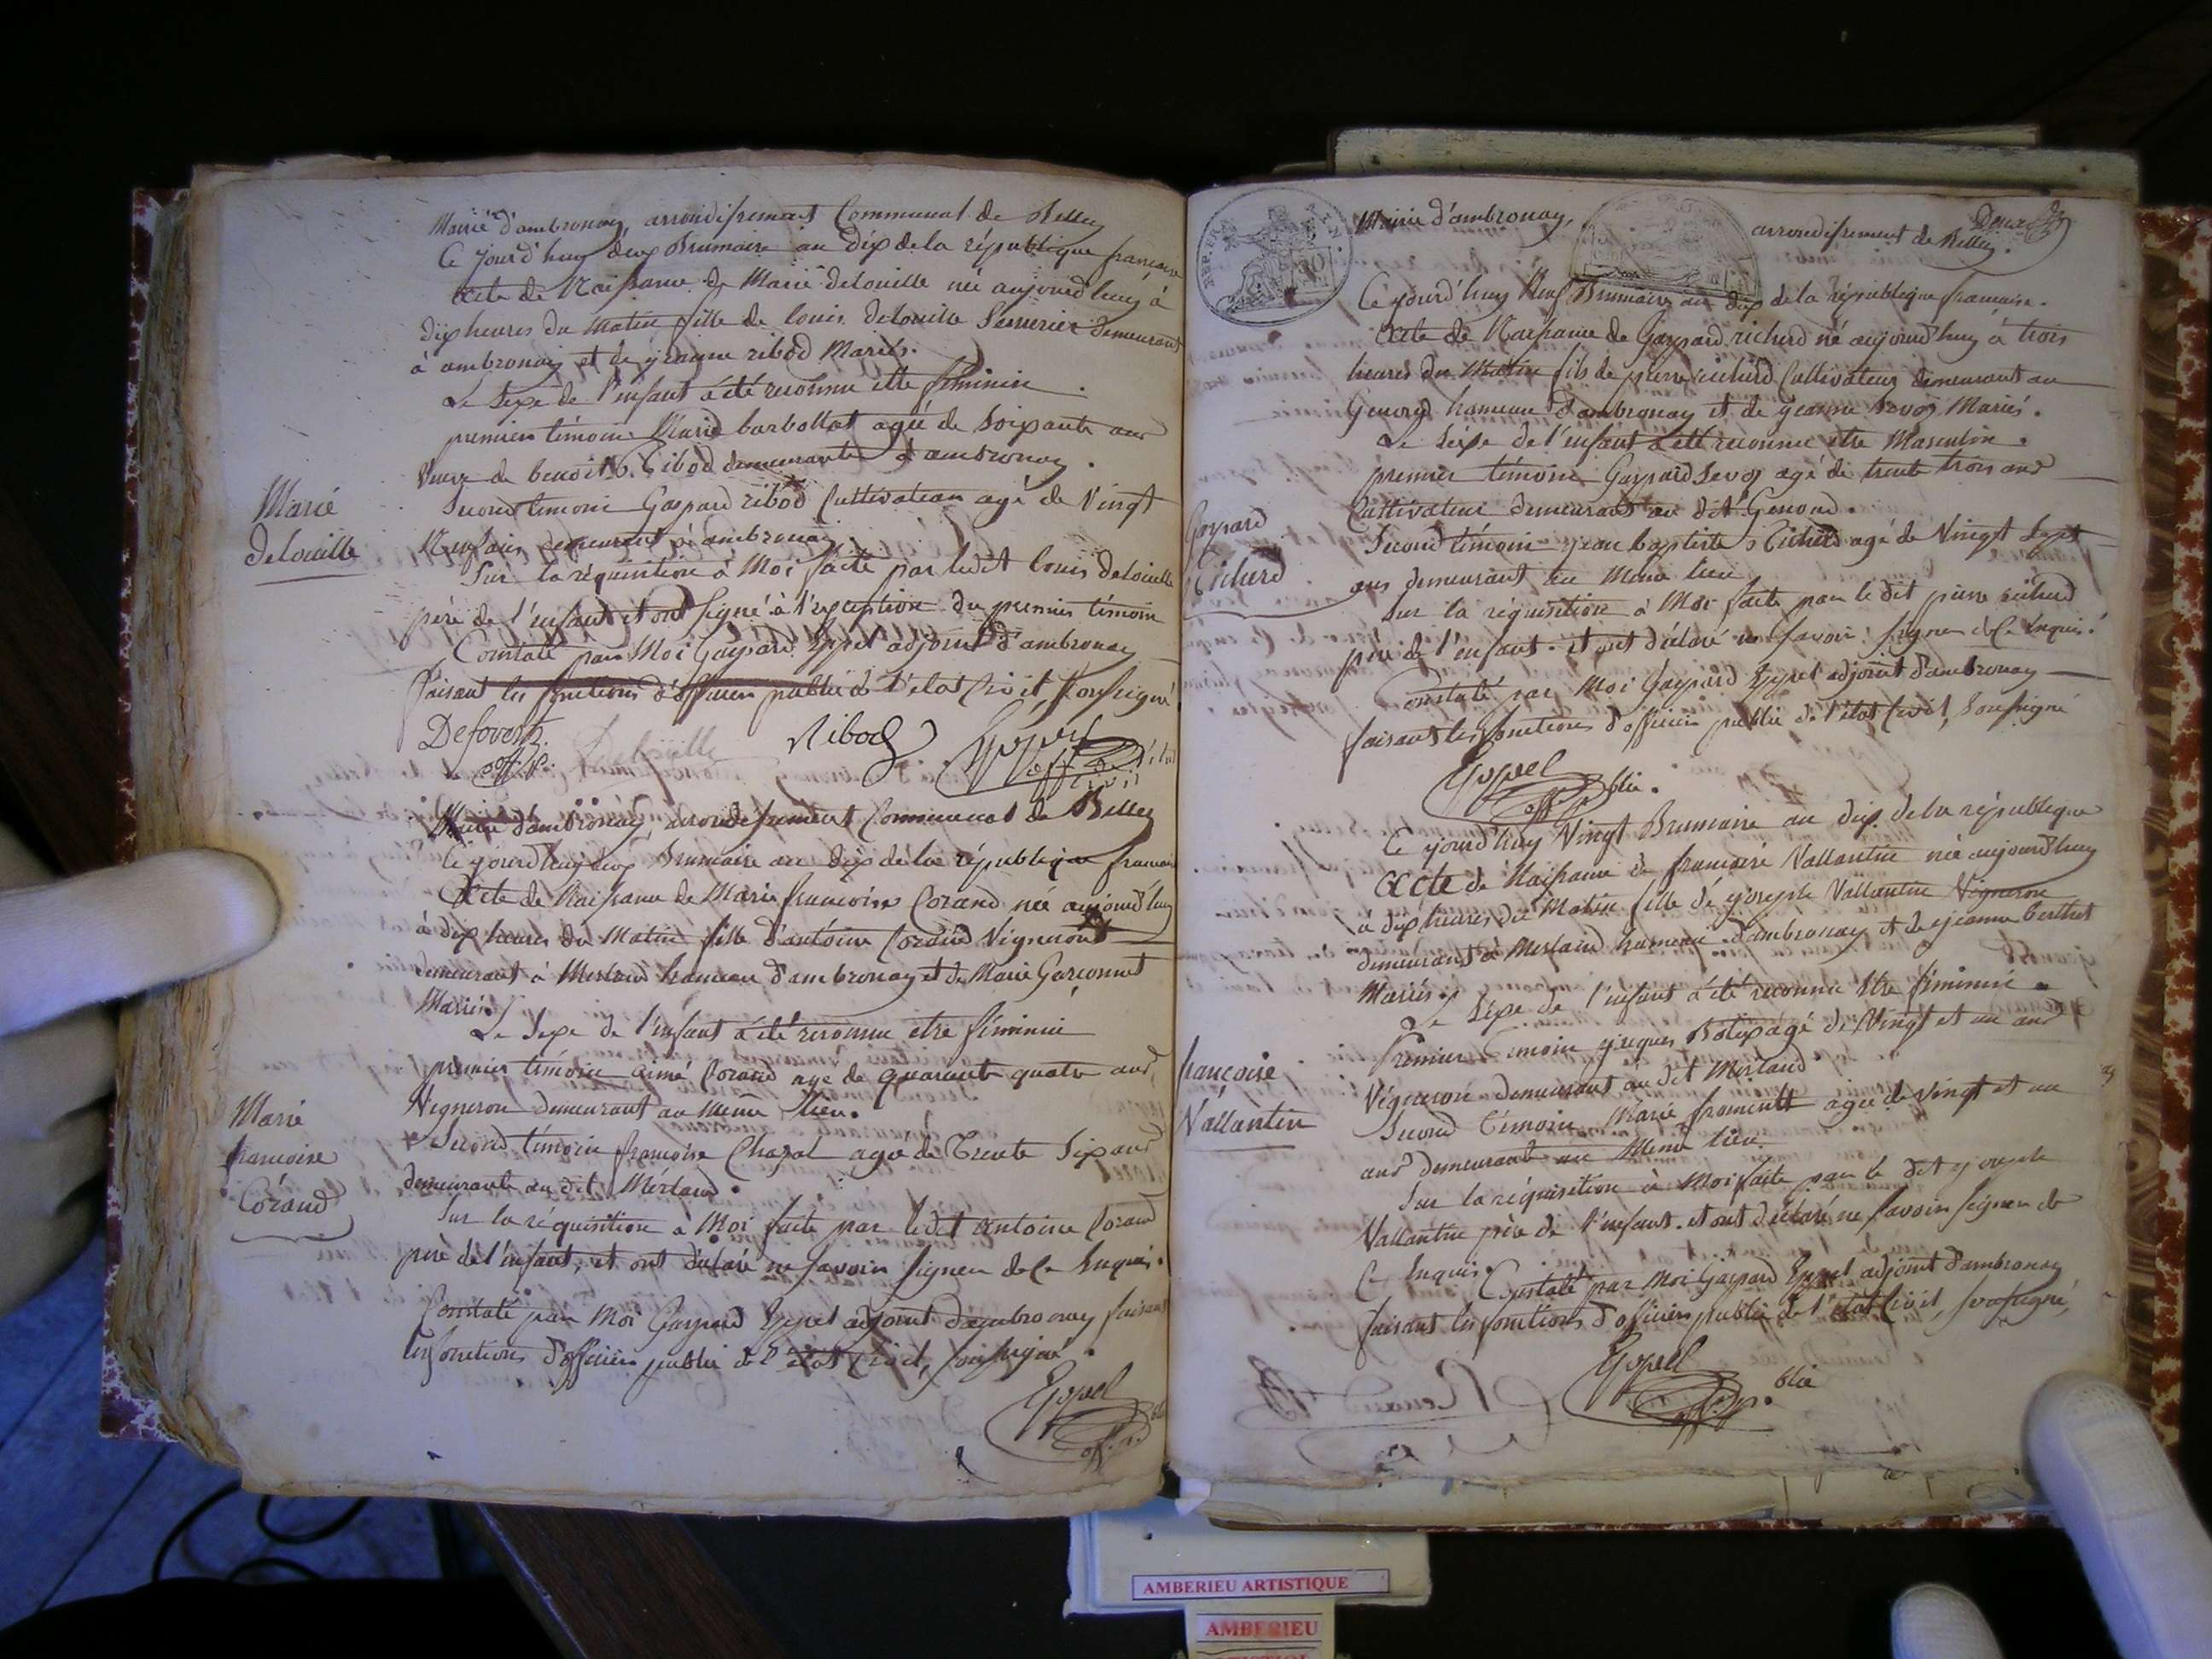 Mairie d'ambronay, arrondissement Communal de Belley
Ce jourd'huy deux Brumaire an dix de la république francaise
Acte de Naissance de Marie delouille née aujourd'huy à
dix heures du Matin fille de louis delouille Serrurier demeurant
à ambronay et de jeanne ribod Mariés.
Le Sexe de l'enfant a été reconnu etre féminin.
premier témoin Marie barbollat agée de Soixante ans
Veuve de benoit Ribod demeurante à ambronay.
Marie
delouille
Second témoin Gaspard ribod Cultivateur agé de Vingt
Neuf ans demeurant à ambronay.
Sur la réquisition à Moi faite par ledit louis delouille
père de l'enfant et ont signé à l'exception du premier témoin
Constaté par Moi Gaspard Eypel adjoint d'ambronay
faisant les fonctions d'officier public de l'état Civil, soussigné
Delouille Ribod Eypel
Mairie d'ambronay, arrondissement Communal de Belley
Ce jourd'huy Brumaire an dix de la république francaise
Acte de Naissance de Marie francoise Corand née aujourd'huy
à dix heures du Matin fille d'antoine Corand Vigneront
demeurant à Merland hameau d'ambronay et de Marie Garconnet
Mariés.
Le Sexe de l'enfant a été reconnu etre féminin
premier témoin aimé Corand age de quarante quatre ans
Vigneron demeurant au Même lieu.
Marie
francoise
Corand
Second témoin francoise Chazal agée de Trente Six ans
demeurante au dit Merland.
Sur la réquisition a Moi faite par ledit antoine Corand
père de l'enfant, et ont déclaré ne savoir signer de ce Enquis.
Constaté par Moi Gaspard Eypel adjoint d'ambronay faisant
les fonctions d'officier public de l'état Civil, soussigné.
Eypel
Mairie d'ambronay, arrondissement de Belley.
REP. FRA.
Ce jourd'huy Neuf Brumaire an dix de la république francaise.
Acte de Naissance de Gaspard richerd né aujourd'huy à trois
heures du Matin fils de pierre richerd Cultivateur demeurant au
hameau d'ambronay et de jeanne Mariés.
Le Sexe de l'enfant a été reconnu etre Masculin.
premier témoin Gaspard agé de trente trois ans
Cultivateur demeurant au dit Genoud.
Gaspard
Richerd
Second témoin jean baptiste Richerd agé de Vingt Sept
ans demeurant au Même lieu
Sur la réquisition à Moi faite par le dit pierre richerd
père de l'enfant. et ont déclaré ne savoir signer de ce Enquis.
Constaté par Moi Gaspard Eypel adjoint d'ambronay
faisant les fonctions d'officier public de l'état Civil, soussigné
Eypel
Ce jourd'huy Vingt Brumaire an dix de la république
Acte de Naissance de francoise Vallantin née aujourd'huy
a dix heures du Matin fille de joseph Vallantin Vigneron
demeurant à Merland hameau d'ambronay et de jeanne berthet
Mariés.
Le Sexe de l'enfant a été reconnu Etre féminin.
Premier Témoin jacques agé de Vingt et un ans
Vigneron demeurant au dit Merland
francoise
Vallantin
Second Témoin Marie froment agée de Vingt et un
ans demeurante au Même lieu.
Sur la réquisition à Moi faite par le dit joseph
Vallantin père de l'enfant. et ont déclaré ne savoir signer de
Ce Enquis. Constaté par Moi Gaspard Eypel adjoint d'ambronay
faisant les fonctions d'officier public de l'état Civil, soussigné,
Eypel
AMBERIEU ARTISTIQUE
AMBERIEU